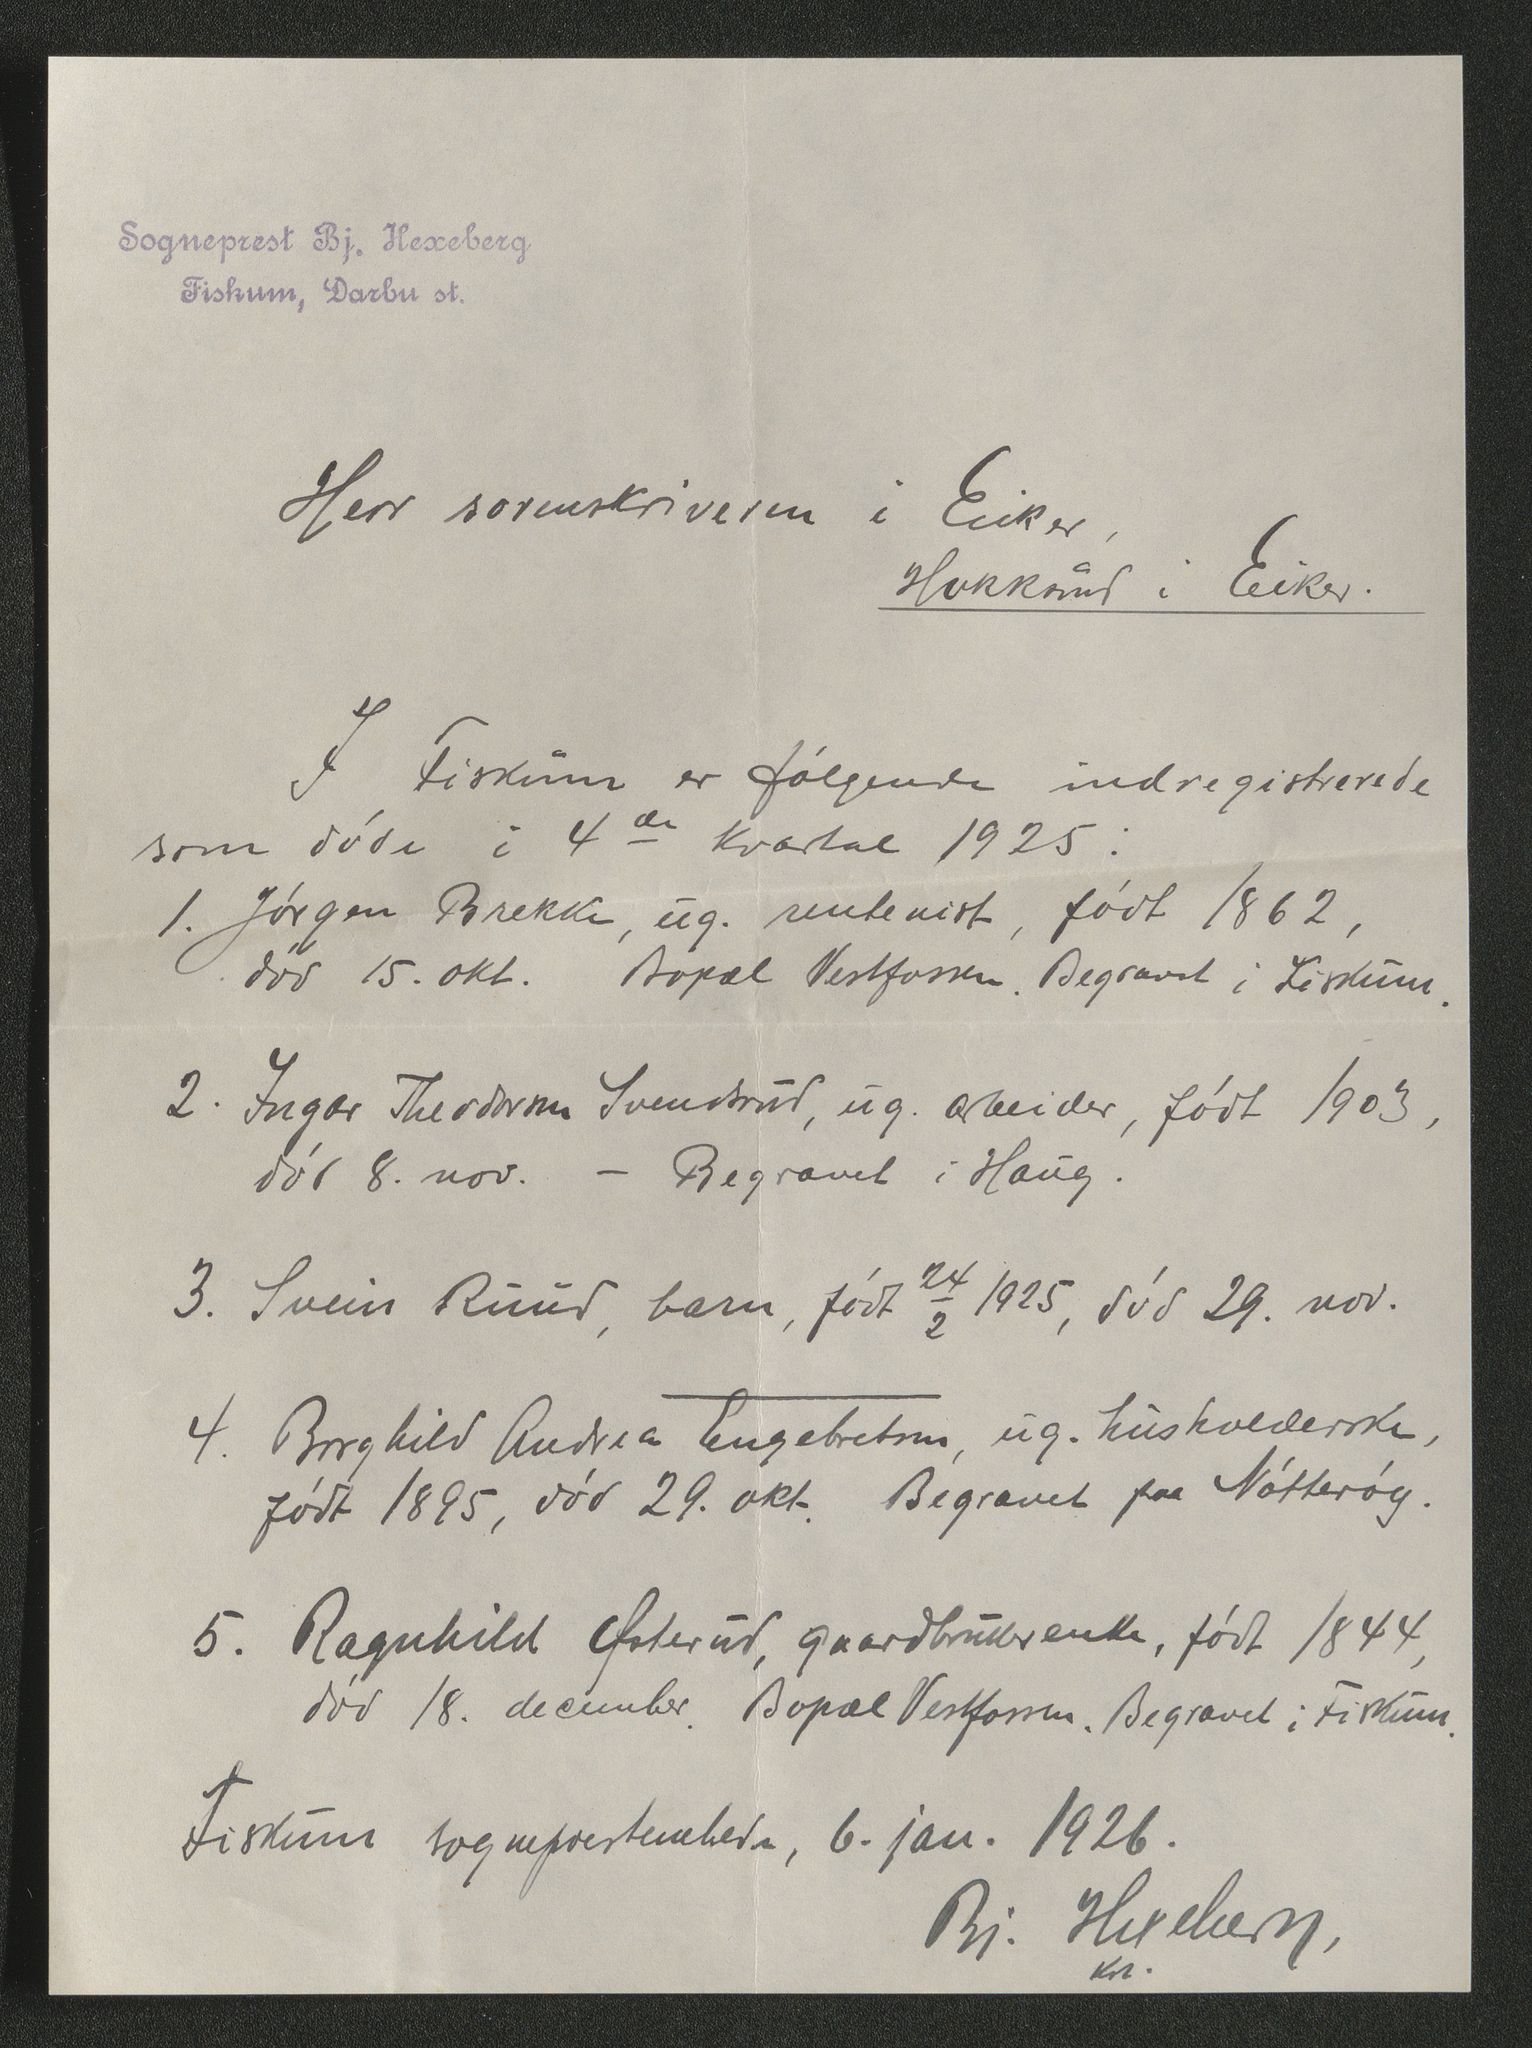 Sogneprest Bj. Hexeberg
Fiskum, Darbu st.
Herr sorenskriveren i Eiker,
Hokksund i Eiker.
I Fiskum er følgende indregistrerede
som døde i 4de kvartal 1925:
1. Jørgen Brekke, ug. rentenist, født 1862,
død 15. okt. Bopæl Vestfossen. Begravet i Fiskum.
2. Ingar Theodorsen Svendsrud, ug. arbeider, født 1903,
død 8. nov. – Begravet i Haug.
3. Svein Ruud, barn, født 24/2 1925, død 29. nov.
4. Borghild Andrea Engebretsen, ug. husholderske,
født 1895, død 29. okt. Begravet paa Nøtterøy.
5. Ragnhild Østerud, gaardbrukerenke, født 1844,
død 18. december. Bopæl Vestfossen. Begravet i Fiskum.
Fiskum sogneprestembede, 6. jan. 1926.
Bj. Hexeberg,
kst.